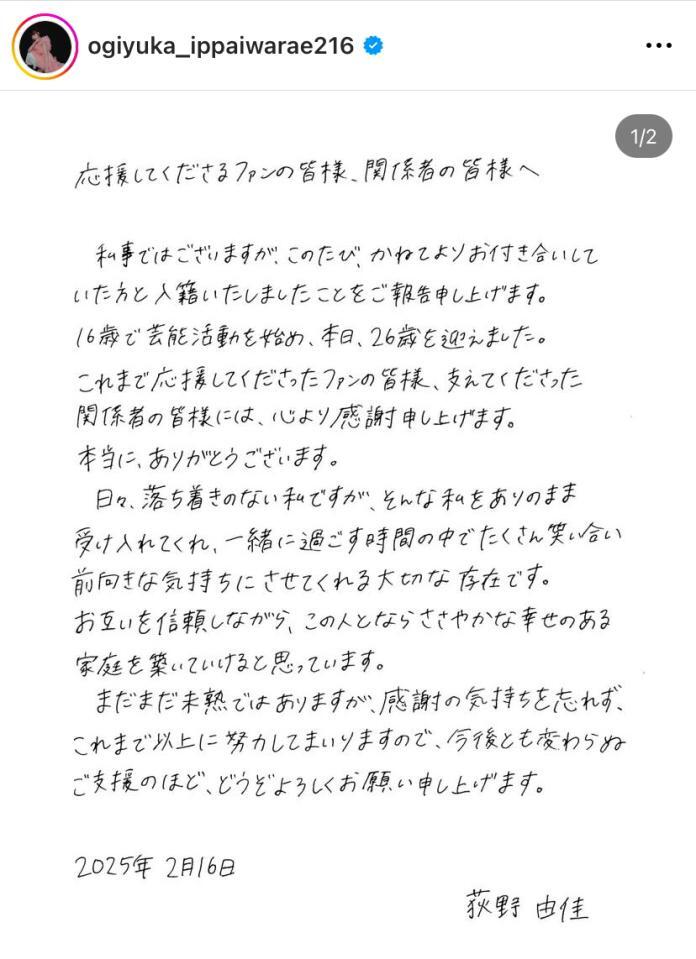 ogiyuka_ippaiwarae216
1/2
応援してくださるファンの皆様、関係者の皆様へ
私事ではございますが、このたび、かねてよりお付き合いして
いた方と入籍いたしましたことをご報告申し上げます。
16歳で芸能活動を始め、本日、26歳を迎えました。
これまで応援してくださったファンの皆様、支えてくださった
関係者の皆様には、心より感謝申し上げます。
本当に、ありがとうございます。
日々、落ち着きのない私ですが、そんな私をありのまま
受け入れてくれ、一緒に過ごす時間の中でたくさん笑い合い
前向きな気持ちにさせてくれる大切な存在です。
お互いを信頼しながら、この人とならささやかな幸せのある
家庭を築いていけると思っています。
まだまだ未熟ではありますが、感謝の気持ちを忘れず、
これまで以上に努力してまいりますので、今後とも変わらぬ
ご支援のほど、どうぞよろしくお願い申し上げます。
2025年 2月16日
荻野 由佳